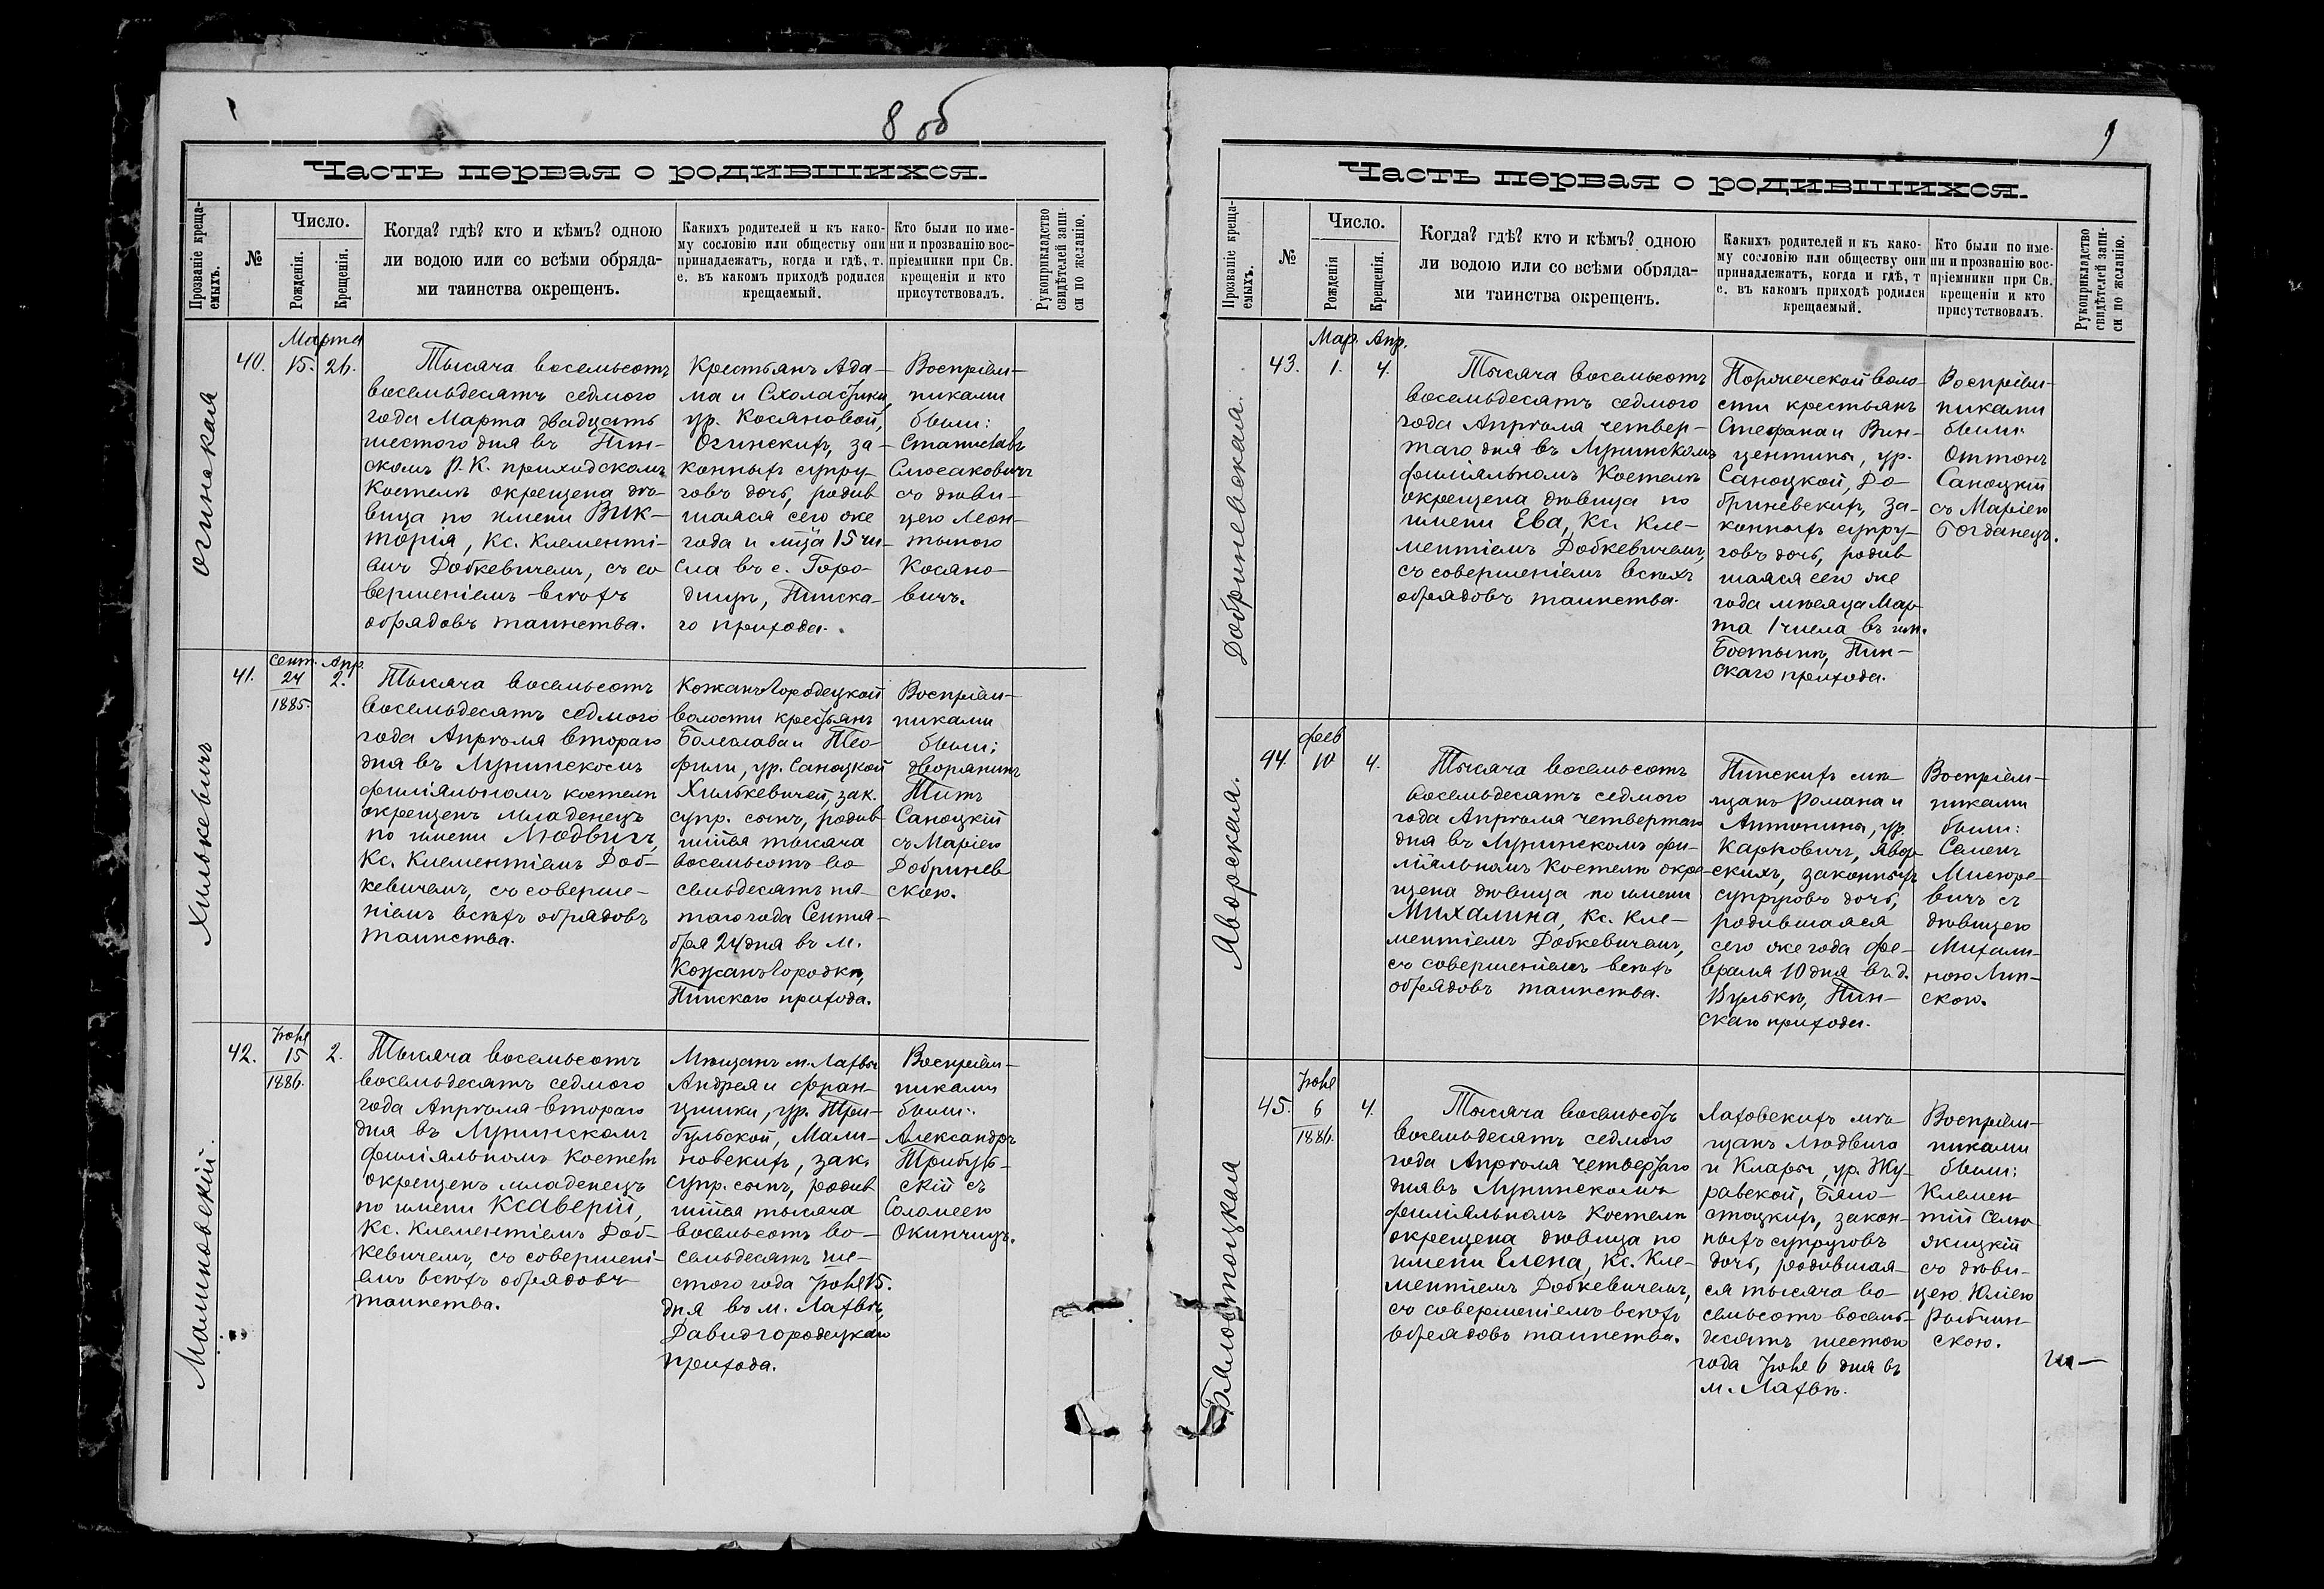 8 об
Часть первая о родившихся.
Прозваніе креща-
емыхъ.
№
Число.
Рожденія.
Крещенія.
Когда? гдѣ? кто и кѣмъ? одною
ли водою или со всѣми обряда-
ми таинства окрещенъ.
Какихъ родителей и къ како-
му сословію или обществу они
принадлежатъ, когда и гдѣ, т.
е. въ какомъ приходѣ родился
крещаемый.
Кто были по име-
ни и прозванію вос-
пріемники при Св.
крещеніи и кто
присутствовалъ.
Рукоприкладство
свидѣтелей запи-
си по желанію.
Огинская
40.
Марта
15. 26.
Тысяча восемьсотъ
восемьдесятъ седмого
года Марта двадцать
шестого дня въ Пин-
скомъ Р. К. приходскомъ
Костелѣ окрещена дѣ-
вица по имени Вик-
торія, Кс. Клементі-
емъ Добкевичемъ, съ со
вершеніемъ всѣхъ
обрядовъ таинства.
Крестьянъ Ада-
ма и Схоластики,
ур. Косяновой,
Огинскихъ, за-
конныхъ супру-
говъ дочь, родив
шаяся сего же
года и мца 15 чи-
сла въ с. Горо-
дищѣ, Пинска-
го прихода.
Воспріем-
никами
были:
Станиславъ
Слюсаковичъ
съ дѣви-
цею Леон-
тыною
Косяно-
вичъ.
Хилькевичъ
41.
Сент. Апр.
24 2.
1885.
Тысяча восемьсотъ
восемьдесятъ седмого
года Апрѣля второго
дня въ Лунинскомъ
филіяльномъ костелѣ
окрещенъ младенецъ
по имени Людвигъ,
Кс. Клементіемъ Доб-
кевичемъ, съ соверше-
ніемъ всѣхъ обрядовъ
таинства.
КожанъГородецкой
волости крестьянъ
Болеслава и Тео-
фили, ур. Саноцкой
Хилькевичей, зак.
супр. сынъ, родив
шійся тысяча
восемьсотъ во-
семьдесятъ пя-
таго года Сентя-
бря 24 дня въ м.
КожанъГородкѣ,
Пинского прихода.
Воспріем-
никами
были:
дворянинъ
Титъ
Саноцкій
съ Маріею
Добринев
скою.
Малиновскій.
42.
Іюня
15 2.
1886.
Тысяча восемьсотъ
восемьдесятъ седмого
года Апрѣля второго
дня въ Лунинскомъ
филіяльномъ костелѣ
окрещенъ младенецъ
по имени Ксаверій,
Кс. Клементіемъ Доб-
кевичемъ, съ совершені-
емъ всѣхъ обрядовъ
таинства.
Мѣщанъ м. Лахвы
Андрея и Фран-
цишки, ур. Три-
бульской, Мали-
новскихъ, зак.
супр. сынъ, родив
шійся тысяча
восемьсотъ во-
семьдесятъ ше-
стого года Іюня 15.
дня въ м. Лахвѣ,
Давидгородецкаго
прихода.
Воспріем-
никами
были:
Александръ
Трибуль-
скій съ
Соломеею
Окинчицъ.
9
Часть первая о родившихся.
Прозваніе креща-
емыхъ.
№
Число.
Рожденія
Крещенія.
Когда? гдѣ? кто и кѣмъ? одною
ли водою или со всѣми обряда-
ми таинства окрещенъ.
Какихъ родителей и къ како-
му сословію или обществу они
принадлежатъ, когда и гдѣ, т
е. въ какомъ приходѣ родился
крещаемый.
Кто были по име-
ни и прозванію вос-
пріемники при Св.
крещеніи и кто
присутствовалъ.
Рукоприкладство
свидѣтелей запи-
си по желанію.
Добриневская.
43.
Мар. Апр.
1. 4.
Тысяча восемьсотъ
восемьдесятъ седмого
года Апрѣля четвер-
таго дня въ Лунинскомъ
филіяльномъ Костелѣ
окрещена дѣвица по
имени Ева, Кс. Кле-
ментіемъ Добкевичемъ,
съ совершеніемъ всѣхъ
обрядовъ таинства.
Порѣчской воло-
сти крестьянъ
Стефана и Вин-
центины, ур.
Саноцкой, До-
бриневскихъ, за-
конныхъ супру-
говъ дочь, родив
шаяся сего же
года мѣсяца Мар-
та 1 числа въ им.
Бостынѣ, Пин-
скаго прихода.
Воспріем-
никами
были:
Оттонъ
Саноцкій
съ Маріею
Богданецъ.
Яворская.
44.
Фев
10 4.
Тысяча восемьсотъ
восемьдесятъ седмого
года Апрѣля четвертаго
дня въ Лунинскомъ фи-
ліяльномъ Костелѣ окре-
щена дѣвица по имени
Михалина, Кс. Кле-
ментіемъ Добкевичемъ,
съ совершеніемъ всѣхъ
обрядовъ таинства.
Пинскихъ мѣ-
щанъ Романа и
Антонины, ур.
Карповичъ, Явор-
скихъ, законныхъ
супруговъ дочь,
родившаяся
сего же года фе-
враля 10 дня въ д.
Вулькѣ, Пин-
скаго прихода.
Воспріем-
никами
были:
Семенъ
Мисюре-
вичъ съ
дѣвицею
Михали-
ною Лин-
скою.
Бялостоцкая
45.
Іюня
6 4.
1886.
Тысяча восемьсотъ
восемьдесятъ седмого
года Апрѣля четвертаго
дня въ Лунинскомъ
филіяльномъ Костелѣ
окрещена дѣвица по
имени Елена, Кс. Кле-
ментіемъ Добкевичемъ,
съ совершеніемъ всѣхъ
обрядовъ таинства.
Лаховскихъ мѣ-
щанъ Людвига
и Клары, ур. Жу-
равской, Бяло-
стоцкихъ, закон-
ныхъ супруговъ
дочь, родившая-
ся тысяча во-
семьсотъ восемь-
десятъ шестого
года Іюня 6 дня въ
м. Лахвѣ.
Воспріем-
никами
были:
Клемен
тій
съ дѣви-
цею Юліею
Рыбчин-
скою.